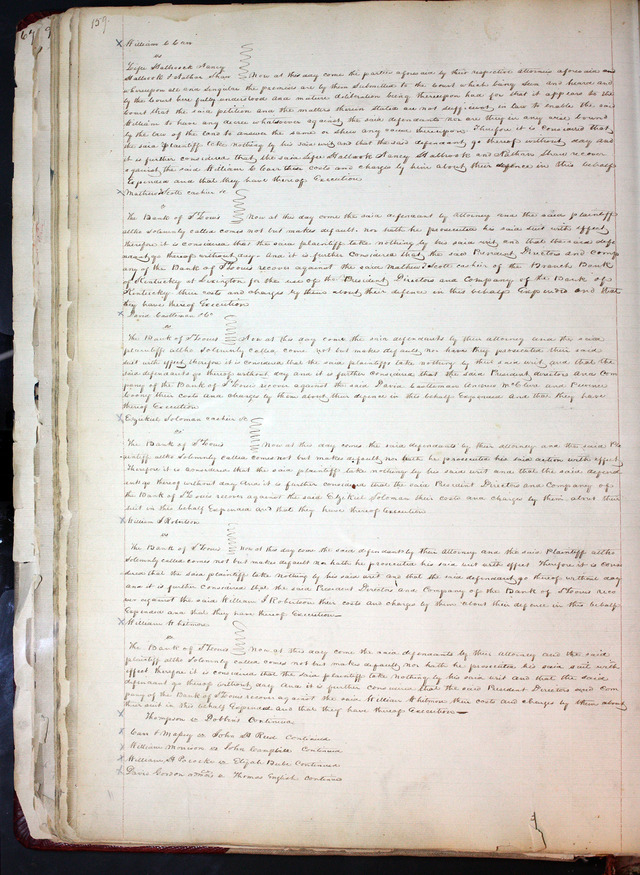 159.
William C Carr
vs
Zipe Stallcock Nancy
Stallcock & Nathan Shaw Now at this day come the parties aforesaid by their respective attornies aforesaid and
whereupon all and singular the premises are by them Submitted to the court which being Seen and heard and
by the court here fully understood and mature deliberation being thereupon had for that it appears to the
Court that the said petition and the matters therein stated are not sufficient in law to enable the said
William to have any decree whatsoever against the said defendants nor are they in any wise bound
by the law of the land to answer the same or shew any cause hereupon. Therefore it is Considered that
the said plaintiff take nothing by his said writ and that the said defendants go thereof without day and
it is further considered that the said Zipe Stallcock Nancy Stallcock and Nathan Shaw recover
against the said William C Carr their costs and charges by him about their defence in this behalf
Expended and that they have thereof Execution
Mathew Scott cashier &c
vs
The Bank of St Louis Now at this day come the said defendant by Attorney and the said plaintiff
altho solemnly called comes not but makes default. Nor hath he prosecuted his said suit with effect
therefore it is considered that the said plaintiff take nothing by his said writ, and that the said defe
ndant go thereof without day. And it is further Considered that the said President Directors and comp
any of the Bank of St Louis recover against the said Mathew Scott cashier of the Branch Bank
of Kentucky at Lexington for the use of the President Directors and Company of the Bank of
Kentucky their costs and charges by them about their defence in this behalf Expended and that
they have thereof Execution
David Castleman &Co
vs
The Bank of St Louis Now at this day come the said defendants by their attorney and the said
plaintiffs altho Solemnly Called come not but makes default, nor have they prosecuted their said
suit with effect therefore it is considered that the said plaintiffs take nothing by their said writ, and that the
said defendants go thereof without day and it is further considered that the said President directors and Com
pany of the Bank of St Louis recover against the said David Castleman Andrew McClure and
their Costs and charges by them about their defence in this behalf Expended And that they have
thereof Execution
Ezekiel Soloman cashier &c
vs
The Bank of St Louis Now at this day comes the said defendants by their Attorney and the said Pla
intiff altho Solemnly called comes not but makes default, nor hath he prosecuted his said action with effect
Therefore it is considered that the said plaintiff take nothing by his said writ and that the said defend
ants go thereof without day And it is further considered that the said President Directors and Company of
the Bank of St Louis recover against the said Ezekiel Soloman their costs and charges by them about their
suit in this behalf Expended and that they have thereof Execution
William J Robertson
vs
The Bank of St Louis Now at this day come the said defendants by their Attorney and the said Plaintiff altho
Solemnly called comes not but makes default no hath he prosecuted his said suit with effect Therefore it is cons
idered that the said plaintiff take nothing by his said writ and that the said defendant go thereof without day
and it is further considered that the said President Directors and Company of the Bank of St Louis reco
ver against the said William J Robertson their costs and charges by them about their defence in this behalf
Expended and that they have thereof Execution—
William Whitmore
vs
The Bank of St Louis Now at this day come the said defendants by their Attorney and the said
plaintiff altho Solemnly Called comes not but makes default, nor hath he prosecuted his said suit with
effect therefore it is considered that the said plaintiff take nothing by his said writ and that the said
defendant go thereof without day And it is further Considered that the said President Directors and Com
pany of the Bank of St Louis recover against the said William Whitmore their costs and charges by them about
their suit in this behalf Expended and that they have thereof Execution—
Thompson vs Dobbins Continued
Carr & vs John D Reed Continued
William Morrison vs John Campbell Continued
William D vs Elijah Continued
David Gordon vs Thomas English Continued